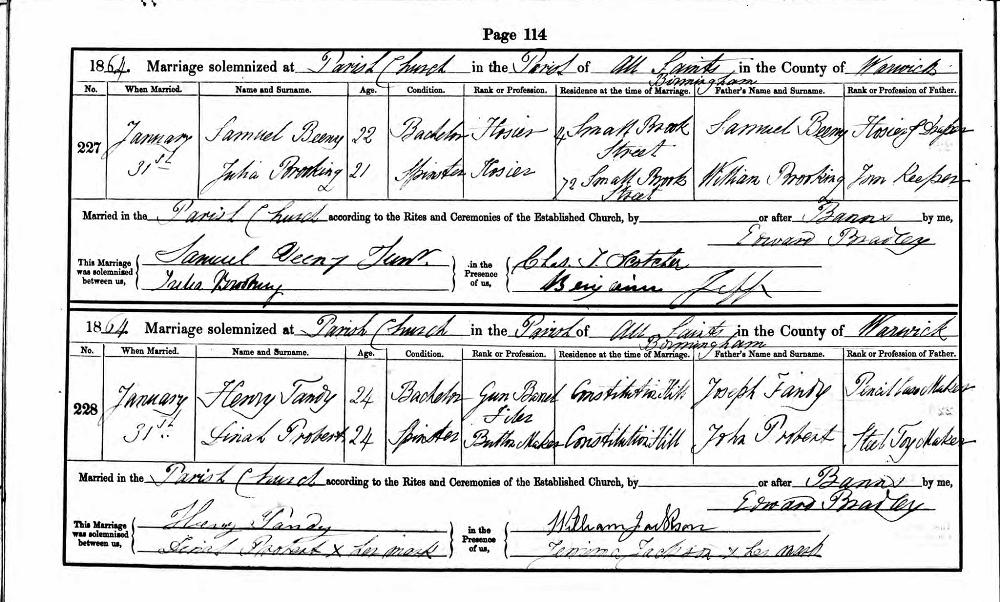 Page 114
1864. Marriage solemnized at Parish Church in the Parish of All Saints in the County of Warwick
Birmingham
No. When Married. Name and Surname. Age. Condition. Rank or Profession. Residence at the time of Marriage. Father's Name and Surname. Rank or Profession of Father.
227 January Samuel Beeny 22 Bachelor Hosier Small Brook Street Samuel Beeny Hosier & Draper
31st Julia Brooking 21 Spinster Hosier 72 Small Brook Street William Brooking Keeper
Married in the Parish Church according to the Rites and Ceremonies of the Established Church, by or after Banns by me,
Edward Bradley
This Marriage was solemnized between us, Samuel Beeny Junr. in the Presence of us, Chas. T.
Julia Brooking Benjamin Jeff
1864 Marriage solemnized at Parish Church in the Parish of All Saints in the County of Warwick
Birmingham
No. When Married. Name and Surname. Age. Condition. Rank or Profession. Residence at the time of Marriage. Father's Name and Surname. Rank or Profession of Father.
228 January Henry Tandy 24 Bachelor Gun Barrel Filer Constitution Hill Joseph Tandy Pencil Case Maker
31st Sinah Probert 24 Spinster Button Maker Constitution Hill John Probert Steel Toy Maker
Married in the Parish Church according to the Rites and Ceremonies of the Established Church, by or after Banns by me,
Edward Bradley
This Marriage was solemnized between us, Henry Tandy in the Presence of us, William Jackson
Sinah Probert x her mark Jemima Jackson x her mark